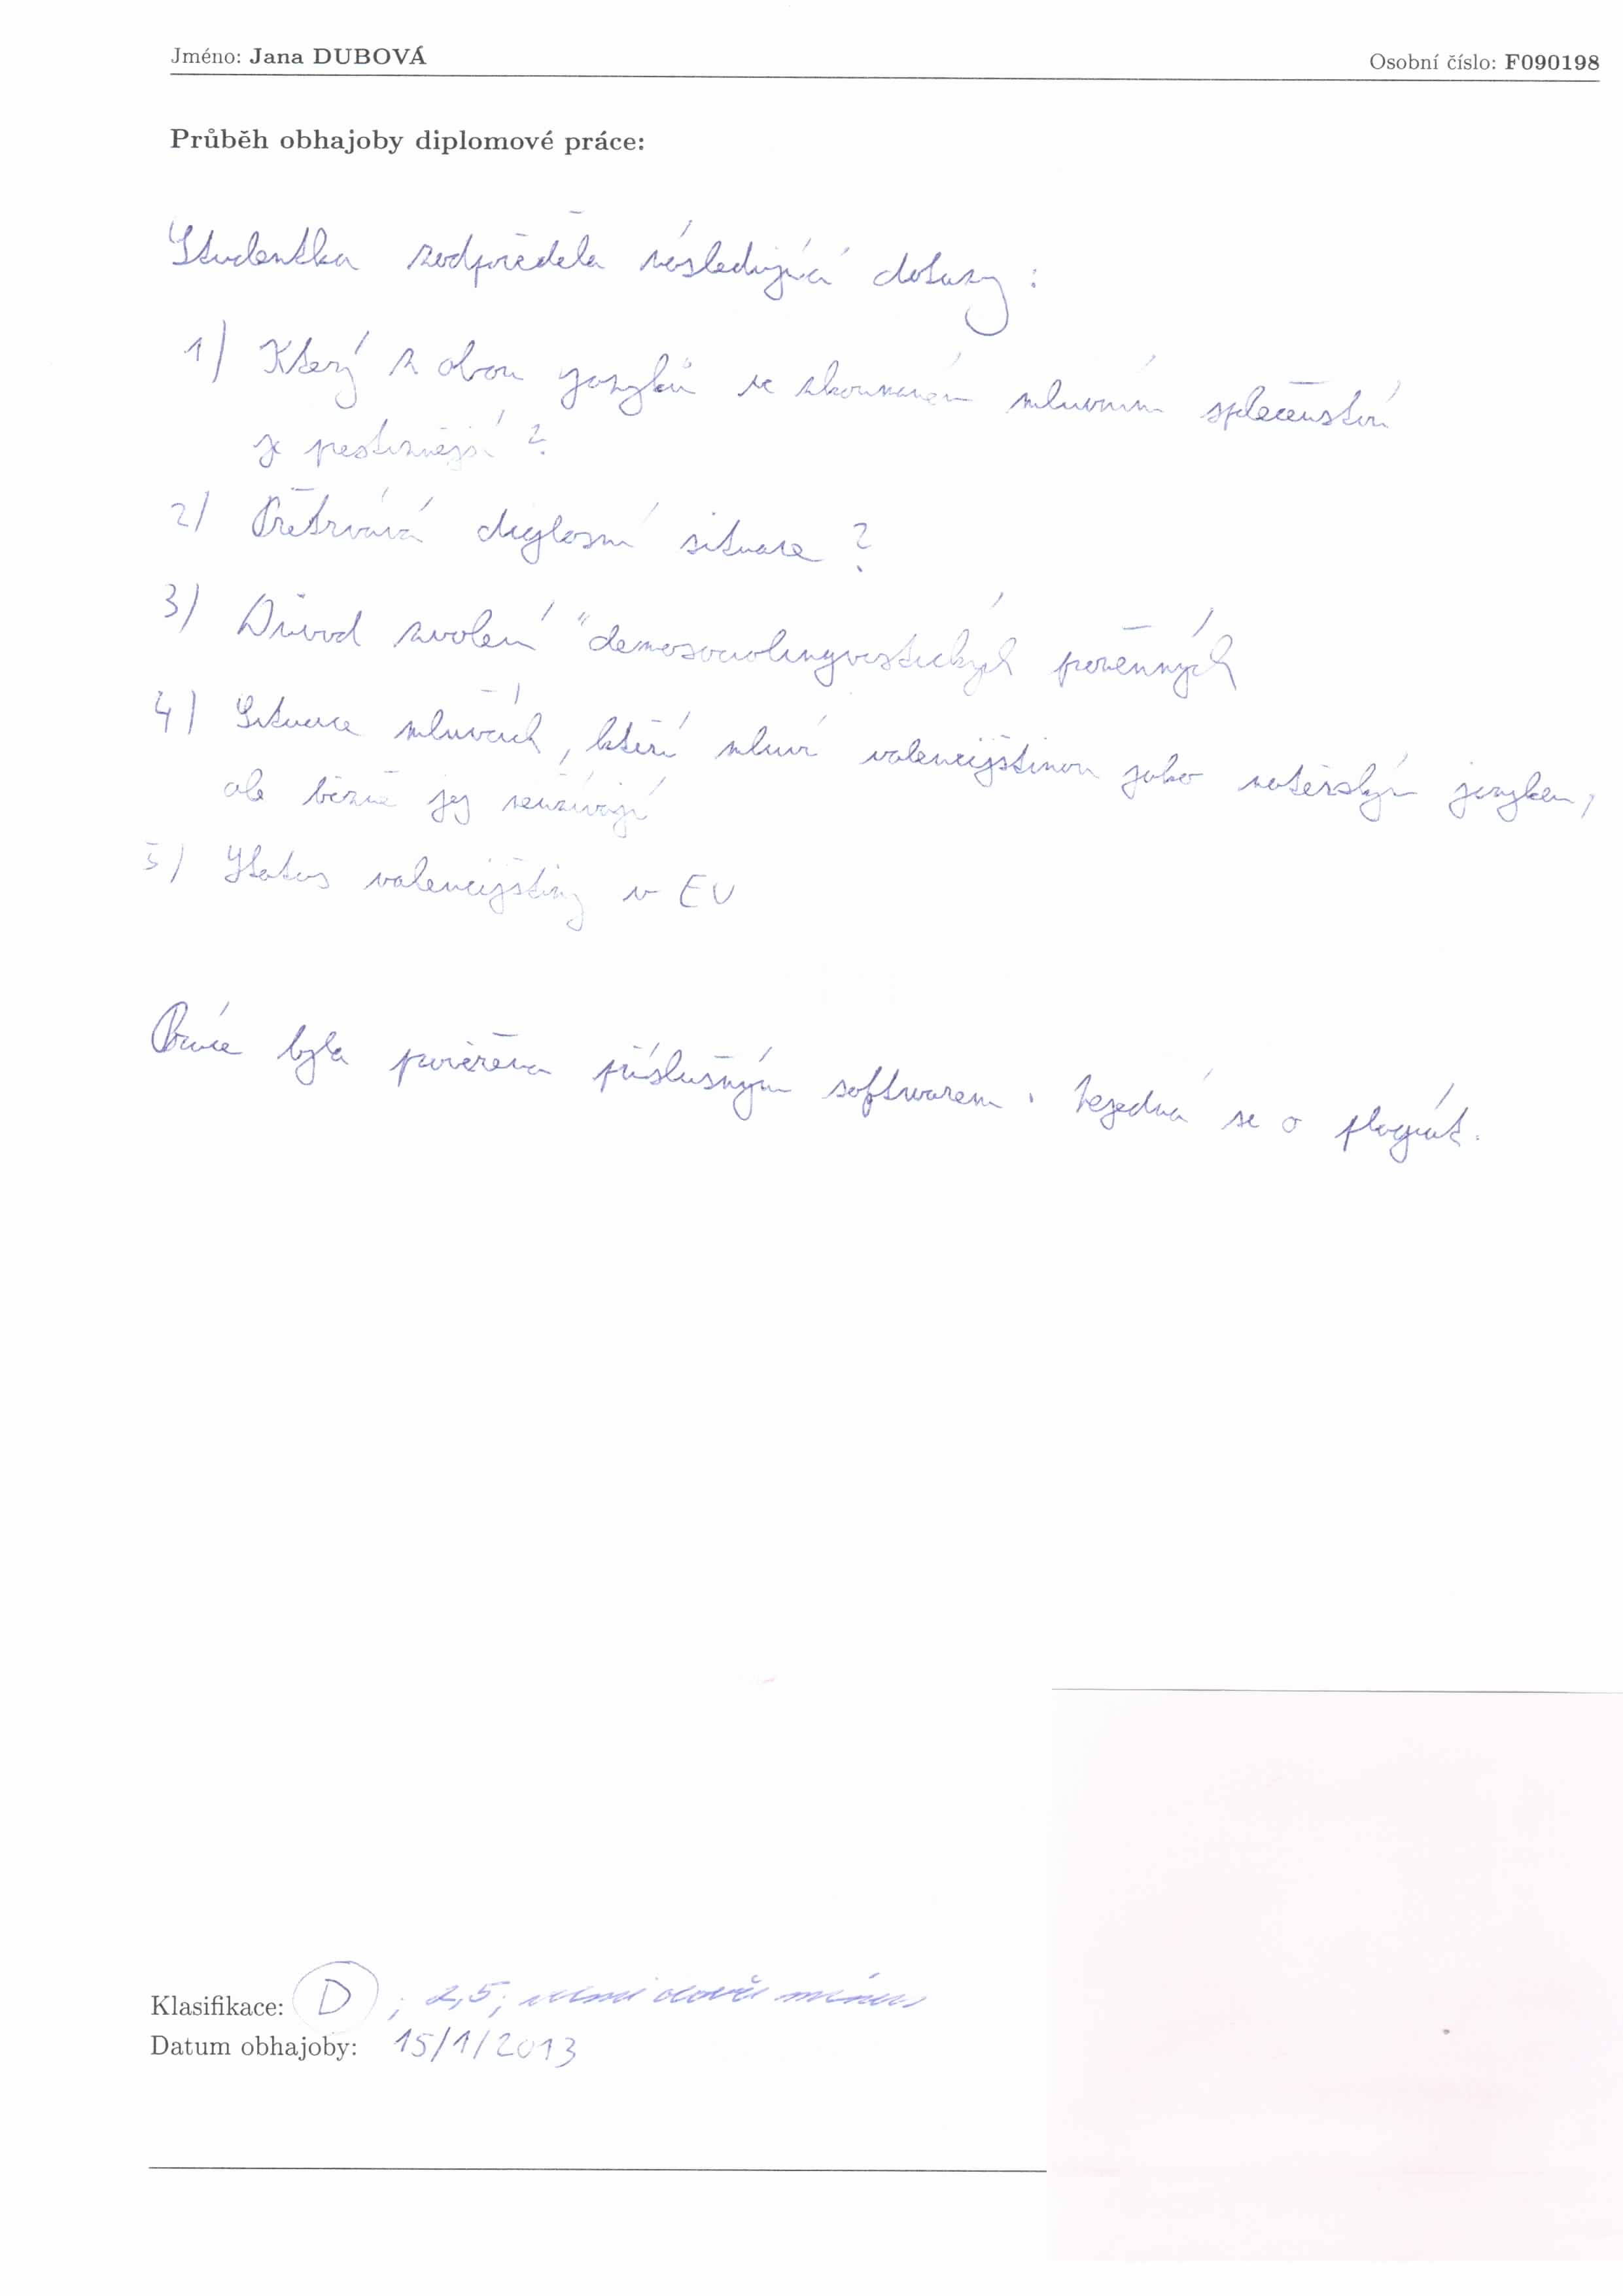 Jméno: Jana DUBOVÁ
Osobní číslo: F090198
Průběh obhajoby diplomové práce:
Studentka zodpověděla následující dotazy:
1) Který z obou jazyků ve zkoumaném mluvním společenství
je prestižnější?
2) Přetrvává diglosní situace?
3) Důvod zvolení "demosociolingvistických proměnných
4) Situace mluvčích, kteří mluví valencijštinou jako mateřským jazykem,
ale běžně jej neužívají
5) Status valencijštiny v EU
Práce byla prověřena příslušným softwarem. Nejedná se o plagiát.
Klasifikace: D; 2,5; velmi dobře mínus
Datum obhajoby: 15/1/2013